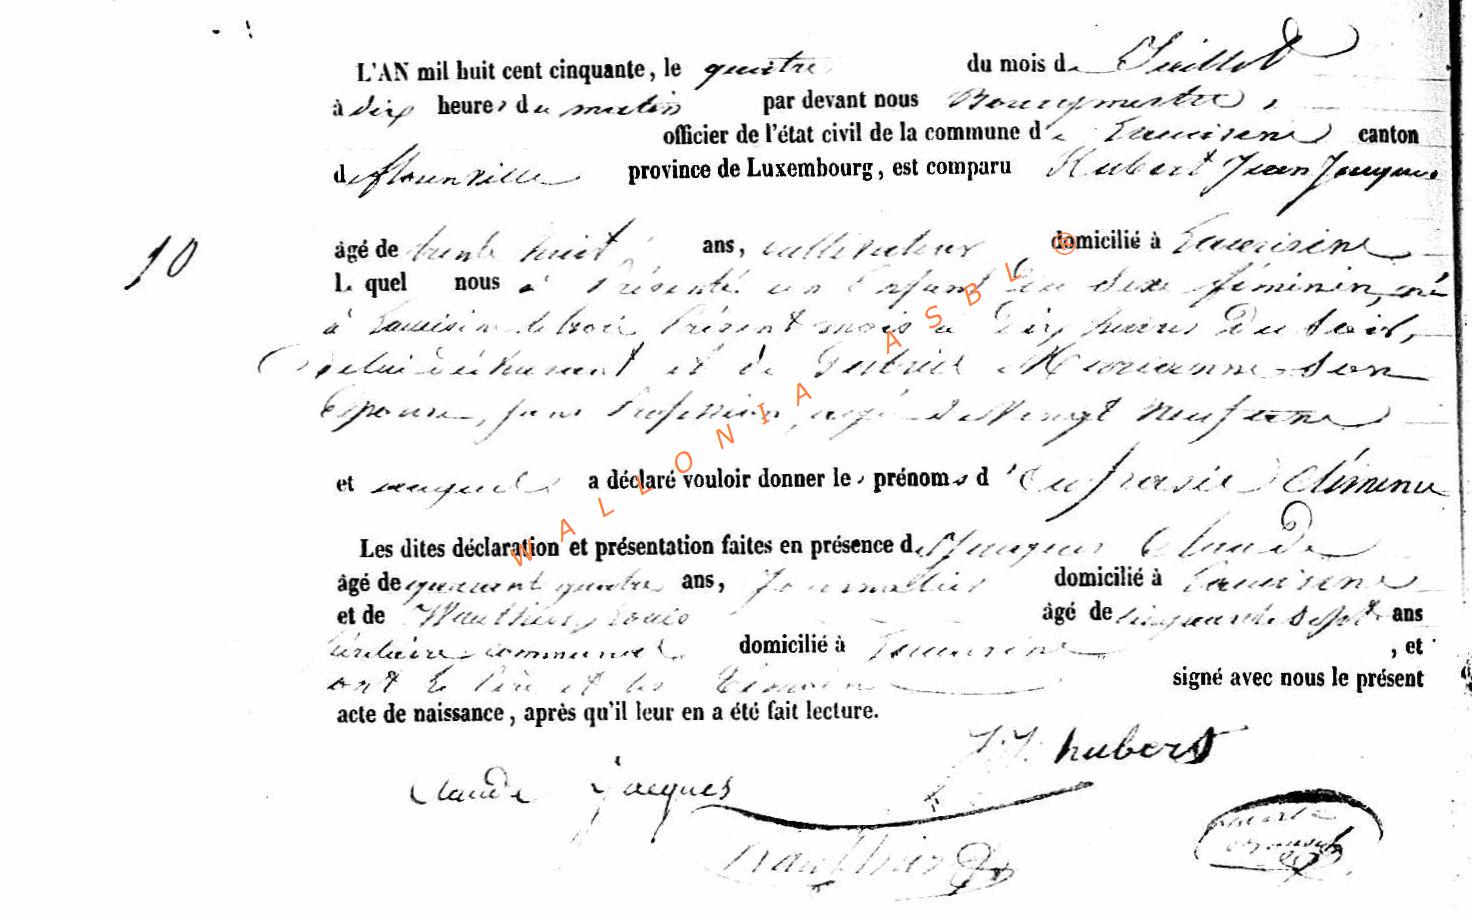 L'AN mil huit cent cinquante, le quatre du mois de Juillet
à dix heures du matin par devant nous Bourgmestre,
officier de l'état civil de la commune de canton
de florenville province de Luxembourg, est comparu Hubert Jean Jacques
10
âgé de trente huit ans, cultivateur domicilié à
Le quel nous a Présenté un Enfant Du sexe féminin, né
à le trois Présent mois à Dix heures Du Soir,
de lui déclarant et de Marianne son
Epouse, sans Profession, agée de Vingt Neuf ans
et auquel a déclaré vouloir donner les prénoms d'Eufrasie Clémence
Les dites déclaration et présentation faites en présence de Jacques Claude
âgé de quarante quatre ans, Journalier domicilié à
et de Wauthier Louis âgé de cinquante Sept ans
Secrétaire communal domicilié à , et
ont le Père et les Témoins signé avec nous le présent
acte de naissance, après qu'il leur en a été fait lecture.
J. J. hubert
Claude Jacques
Wauthier
WALLONIA ASBL ®